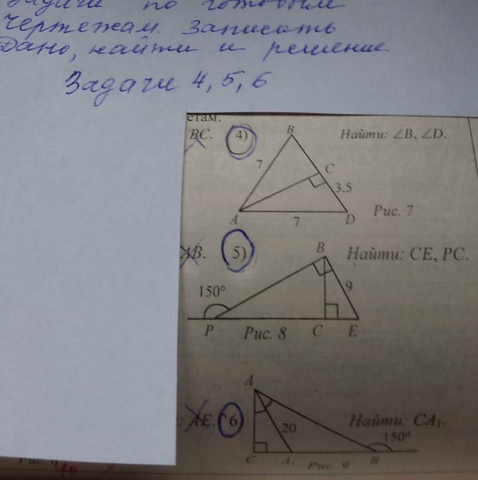 Задачи по готовым
чертежам. Записать
Дано, найти и решение
Задачи 4, 5, 6
етам.
BC. 4) Найти: ∠B, ∠D.
B
7
C
3,5
A
7
D
Рис. 7
AB. 5) Найти: CE, PC.
B
150°
9
P
C
E
Рис. 8
A
: AE. 6) Найти: CA₁.
20
150°
C
A₁
B
Рис. 9